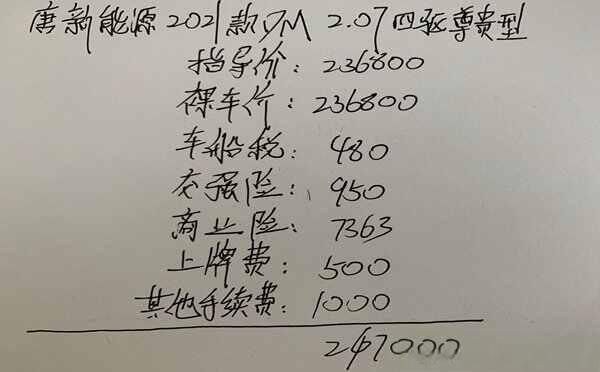 唐新能源2021款DM 2.0T四驱尊贵型
指导价：236800
裸车价：236800
车船税：480
交强险：950
商业险：7363
上牌费：500
其他手续费：1000
247000